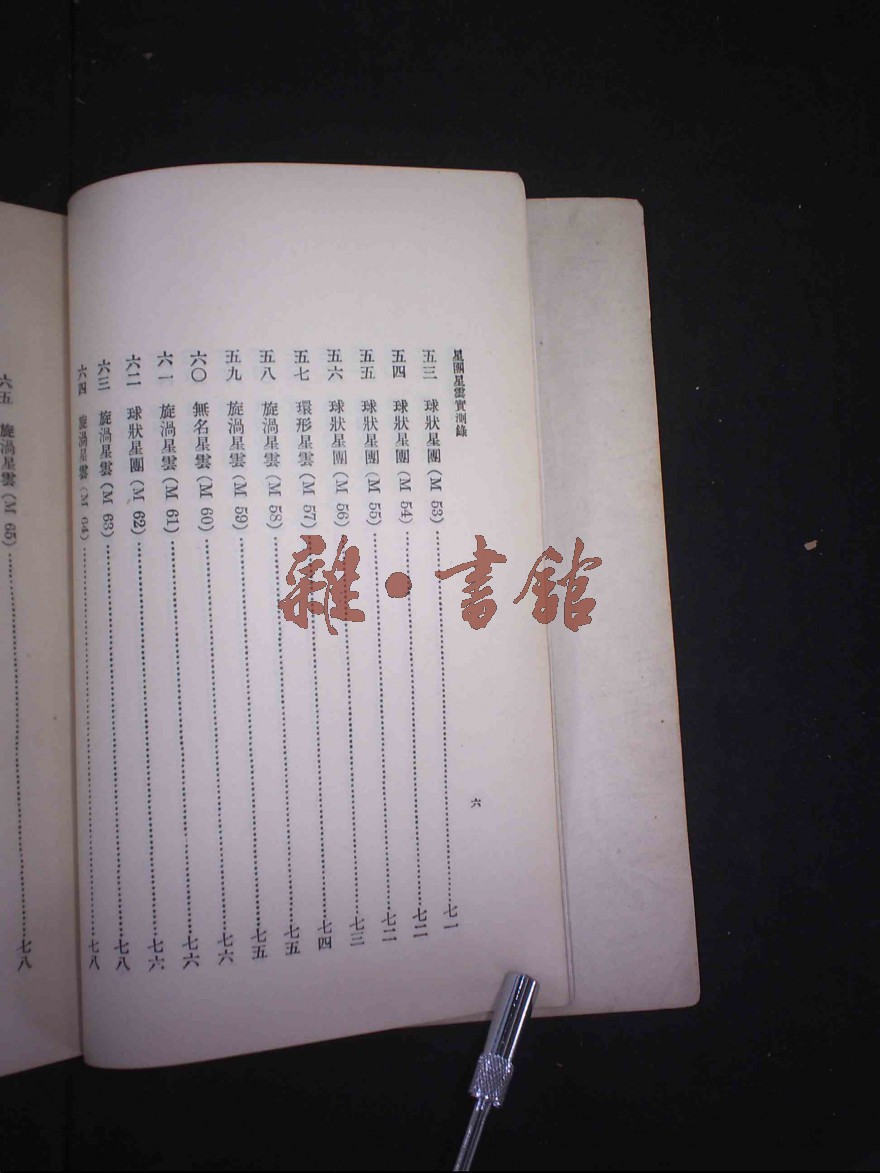 星團星雲實測錄
五三 球狀星團(M 53)……七一
五四 球狀星團(M 54)……七二
五五 球狀星團(M 55)……七二
五六 球狀星團(M 56)……七三
五七 環形星雲(M 57)……七四
五八 旋渦星雲(M 58)……七五
五九 旋渦星雲(M 59)……七五
六〇 無名星雲(M 60)……七六
六一 旋渦星雲(M 61)……七六
六二 球狀星團(M 62)……七六
六三 旋渦星雲(M 63)……七八
六四 旋渦星雲(M 64)……七八
六
六五 旋渦星雲(M 65)……七八
雜·書館